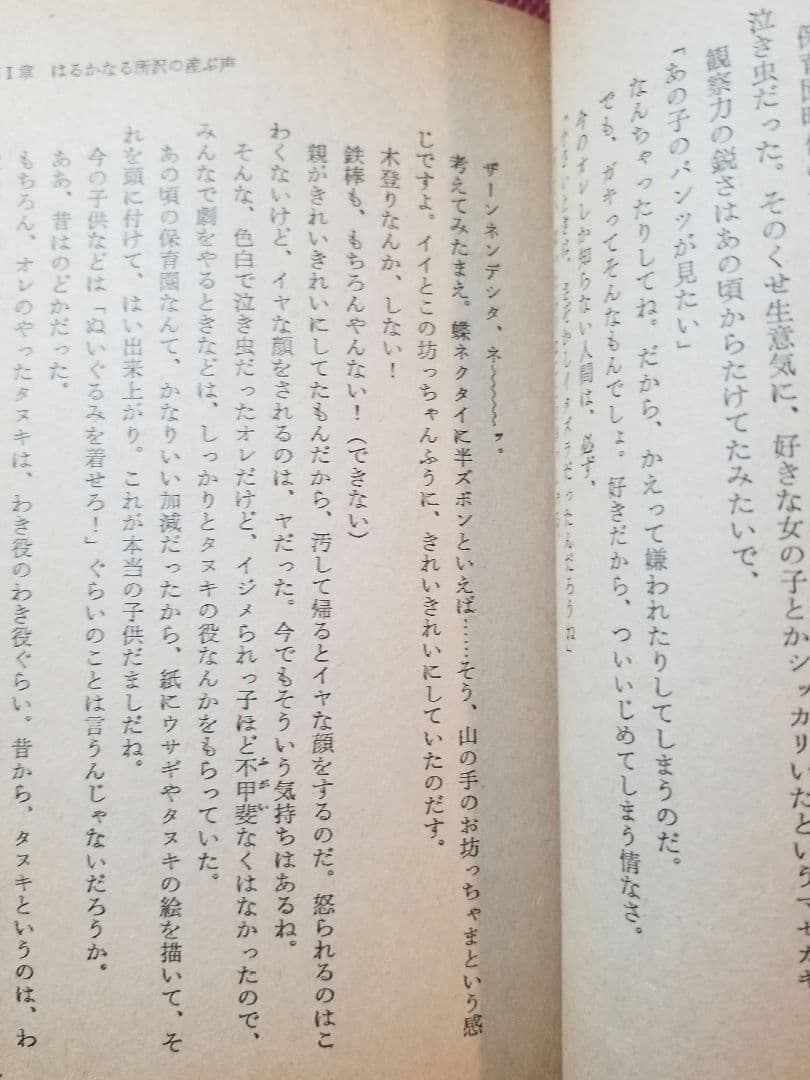 泣き虫だった。そのくせ生意気に、好きな女の子とかシッカリいたというマセガキ
観察力の鋭さはあの頃からたけてたみたいで、
「あの子のパンツが見たい」
なんちゃったりしてね。だから、かえって嫌われたりしてしまうのだ。
でも、ガキってそんなもんでしょ。好きだから、ついいじめてしまう情なさ。
今のオレしか知らない人間は、必ず、
I章 はるかなる所沢の産ぶ声
ザーンネンデシタ、ネ〜〜〜〜ッ。
考えてみたまえ。蝶ネクタイに半ズボンといえば……そう、山の手のお坊っちゃまという感
じですよ。イイとこの坊っちゃんふうに、きれいきれいにしていたのだす。
木登りなんか、しない!
鉄棒も、もちろんやんない!(できない)
親がきれいきれいにしてたもんだから、汚して帰るとイヤな顔をするのだ。怒られるのはこ
わくないけど、イヤな顔をされるのは、ヤだった。今でもそういう気持ちはあるね。
そんな、色白で泣き虫だったオレだけど、イジメられっ子ほど不甲斐なくはなかったので、
ふがい
みんなで劇をやるときなどは、しっかりとタヌキの役なんかをもらっていた。
あの頃の保育園なんて、かなりいい加減だったから、紙にウサギやタヌキの絵を描いて、そ
れを頭に付けて、はい出来上がり。これが本当の子供だましだね。
今の子供などは「ぬいぐるみを着せろ!」ぐらいのことは言うんじゃないだろうか。
ああ、昔はのどかだった。
もちろん、オレのやったタヌキは、わき役のわき役ぐらい。昔から、タヌキというのは、わ